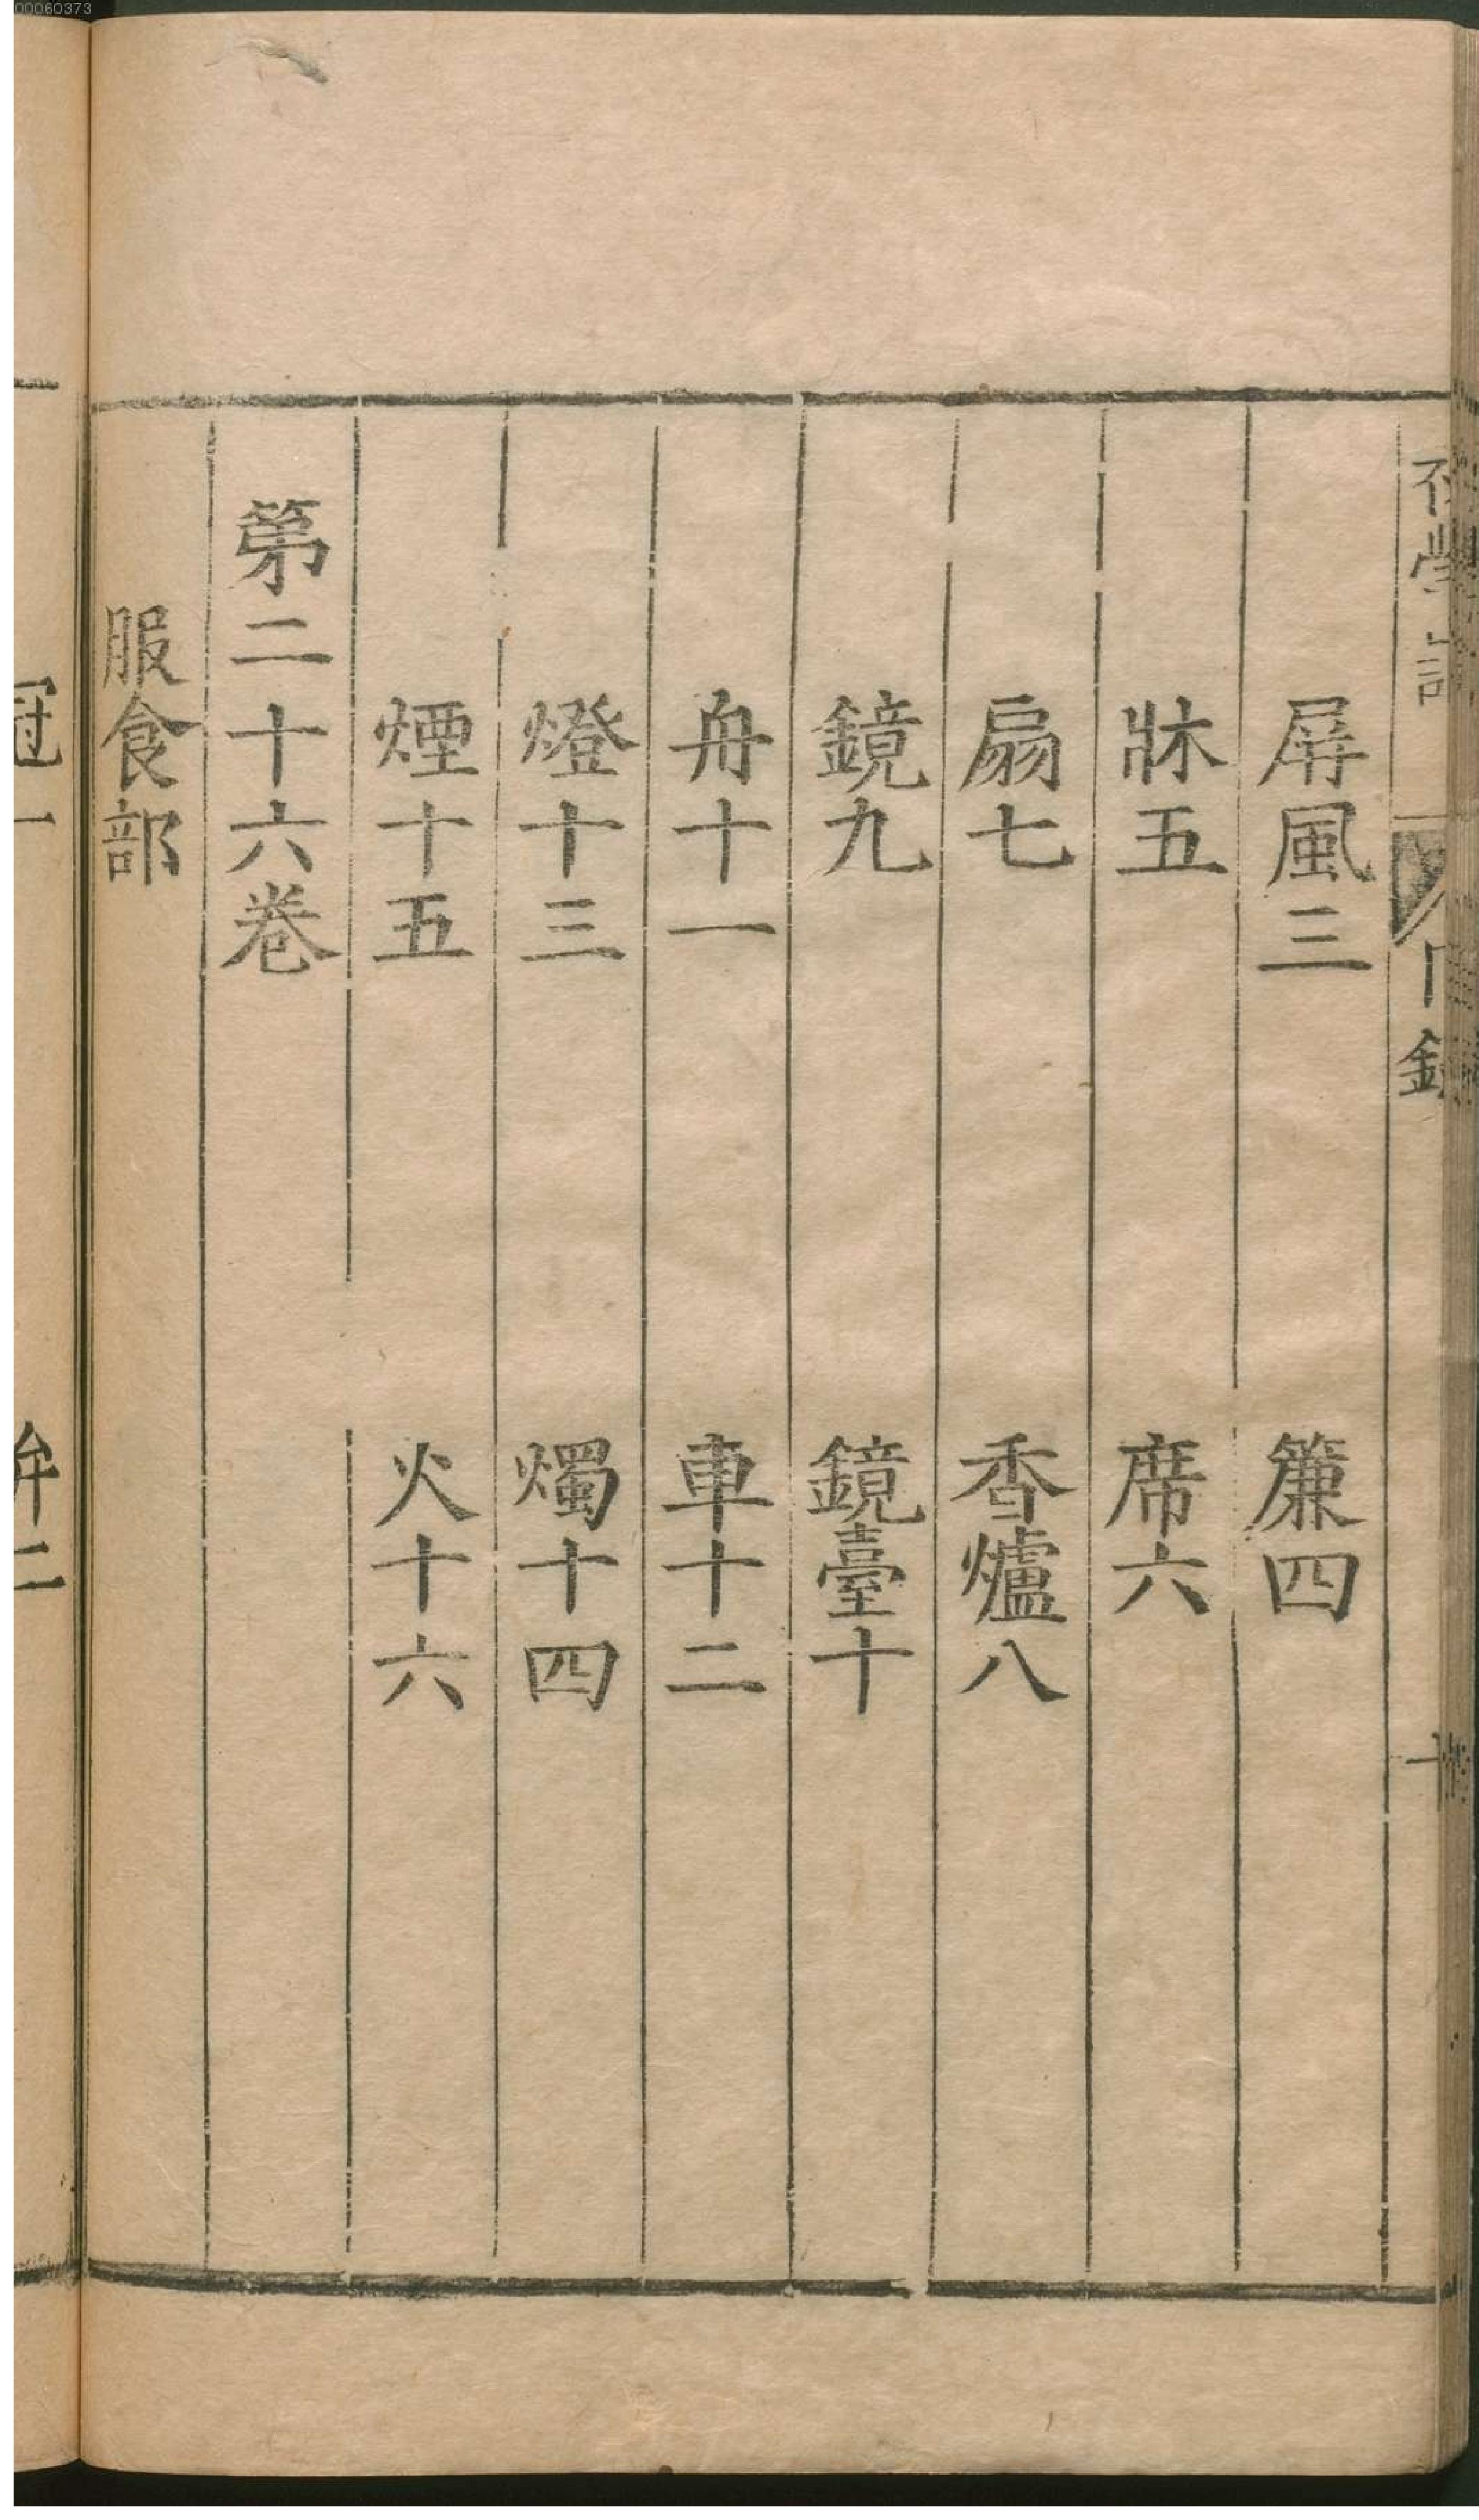 屏風三　簾四
牀五　席六
扇七　香爐八
鏡九　鏡臺十
舟十一　車十二
燈十三　燭十四
煙十五　火十六
第二十六卷
服食部
冠一　弁二
00060373